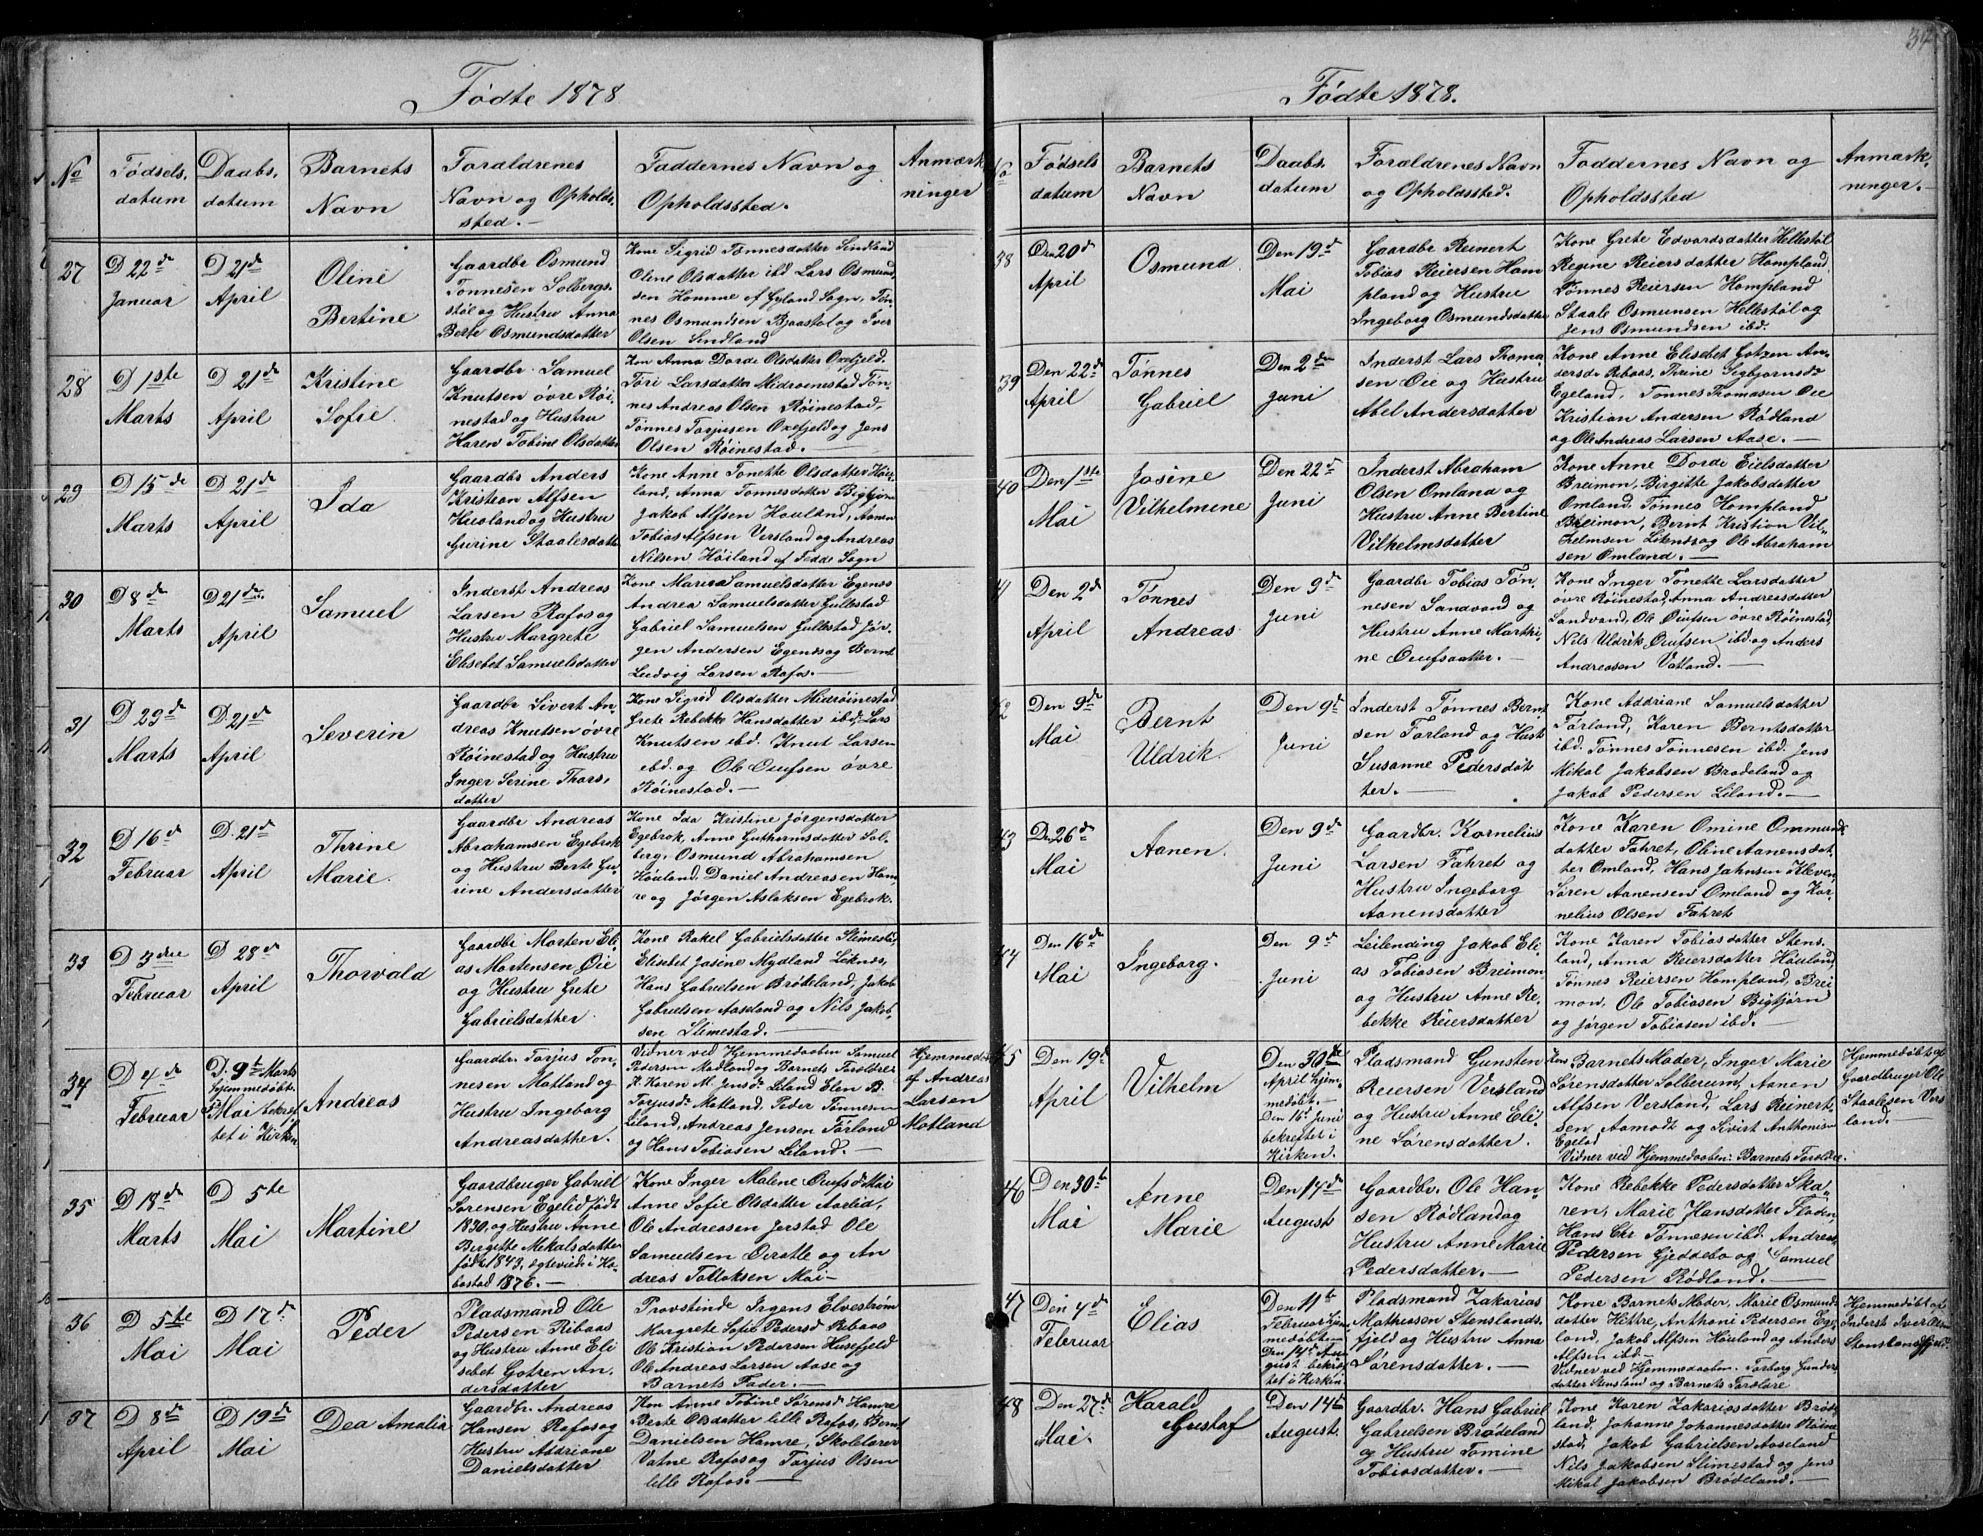 34
Fødte 1878
No
Fødsels
datum
Daabs
datum
Barnets
Navn
Foraldrenes
Navn og Opholds
sted.
Faddernes Navn og
Opholdssted.
Anmærk
ninger
27
D 22de
Januar
D 21de
April
Oline
Bertine
Gaardbr Osmund
Tønnesen Solbergs
støl og Hustru Anna
Berte Osmundsdatter
Kone Sigrid Tønnesdatter Sindland
Oline Olsdatter ibd Lars Osmund
sen Homme af Gyland Sogn, Tøn
nes Osmundsen Bjaastøl og Iver
Olsen Sindland
28
D 1ste
Marts
D 21de
April
Kristine
Sofie
Gaardbr Samuel
Knutsen øvre Røi
nestad og Hustru
Karen Tobine Olsdatter
Kon Anna Dorde Olsdatter Oxefjeld
Tøri Larsdatter Midrøinestad Tøn
nes Andreas Olsen Røinestad,
Tønnes Torjusen Oxefjeld og Jens
Olsen Røinestad.
29
D 15de
Marts
D 21de
April
Ida
Gaardbr Anders
Kristian Alfsen
Huoland og Hustru
Gurine Staalesdatter
Kone Anne Tonette Olsdatter Høi
land, Anna Tønnesdatter Bigtjøn
Jakob Alfsen Houland, Aanen
Tobias Alfsen Versland og Andreas
Nilsen Høiland af Fedde Sogn
30
D 8de
Marts
D 21de
April
Samuel
Inderst Andreas
Larsen Rafos og
Hustru Margrete
Elisebet Samuelsdatter
Kone Maria Samuelsdatter Egenes
Andrea Samuelsdatter Gullestad
Gabriel Samuelsen Gullestad Jør
gen Andersen Egenes og Bernt
Ludvig Larsen Rafos.
31
D 29de
Marts
D. 21de
April
Severin
Gaardbr Sivert An
dreas Knutsen øvre
Røinestad og Hustru
Inger Serine Thors
datter
Kone Sigrid Olsdatter Midrøinestad
Grete Rebekke Hansdatter ibd. Lars
Knutsen ibd. Knut Larsen
ibd. og Ole Oufsen øvre
Røinestad.
32
D 16de
Februar
D. 21de
April
Thrine
Marie.
Gaardbr Andreas
Abrahamsen Egebrok
og Hustru Berte Gu
rine Andersdatter
Kone Ida Kristine Jørgensdatter
Egebrok, Anne Guthormsdatter Sol
berg, Osmund Abrahamsen
Houland, Daniel Andreasen Ham
re og Jørgen Aslaksen Egebrok.
33
D 3die
Februar
D. 28de
April
Thorvald
Gaardbr Morten Eli
as Mortensen Øie
og Hustru Grete
Gabrielsdatter.
Kone Rakel Gabrielsdatter Slimestad
Elisabet Josine Mydland Leknes,
Hans Gabrielsen Brødeland, Jakob
Gabrielsen Aaseland og Nils Jakob
sen Slimestad.
34
D 4de
Februar
D. 9de Marts
hjemmedøbt
Mai bekræf
tet i Kirken
Andreas
Gaardbr. Torjus Tøn
nesen Motland og
Hustru Ingeborg
Andreasdatter.
Vidner ved Hjemmedaaben Samuel
Pedersen Modland og Barnets Foreldre
K. Karen M. Jensd. Liland Elen B.
Torjusd. Motland. Peder Tønnesen
Liland, Andreas Jensen Førland
og Hans Tobiasen Liland.
Hjemmedøbt
af Andreas
Larsen
Motland
35
D 18de
Marts
D 5te
Mai
Martine
Gaardbruger Gabriel
Sørensen Egelid født
1830, og Hustru Anne
Birgitte Mikalsdatter
født 1843, egteviede i Ka
bostad 1876.
Kone Inger Malene Oufsd Mai
Anne Sofie Olsdatter Aaelid,
Ole Andreasen Jerstad Ole
Samuelsen Ovrotle og An
dreas Tollaksen Mai
36
D 5te
Mai
D 17de
Mai
Peder
Pladsmand Ole
Pedersen Ribaas
og Hustru Anne Eli
sebet Gotzen An
dersdatter
Provstinde Irgens Elvestrøm
Margrete Sofie Pedersd Ribaas
Ole Kristian Pedersen Husefjeld
Ole Andreas Larsen Aase og
Barnets Fader.
37
D 8de
April
D 19de
Mai
Dea Amalia
Gaardbr. Andreas
Hansen Rafos og
Hustru Adriane
Danielsdatter
Kon Anne Tobine Sørensd Hamre
Berte Olsdatter lille Rafos, Bernt
Danielsen Hamre, Skolelærer
Vatne Rafos og Torjus Olsen
lille Rafos.
Fødte 1878.
No
Fødsels
datum
Barnets
Navn
Daabs.
datum
Foraldrenes Navn
og Opholdssted.
Faddernes Navn og
Opholdssted
Anmærk
ninger.
38
Den 20de
April
Osmund
Den 19de
Mai
Gaardbr Reinert
Tobias Reiersen Hom
pland og Hustru
Ingeborg Osmundsdatter
Kone Grete Edvardsdatter Hellestøl
Regine Reiersdatter Hompland,
Tønnes Reiersen Hompland
Staale Osmunsen Hellestøl og
Jens Osmundsen ibd.
39
Den 22de
April
Tønnes
Gabriel
Den 2den
Juni
Inderst Lars Thoma
sen Oie og Hustru
Abel Andersdatter
Kone Anne Elisebet Gotzen An
dersdr Ribaas, Thrine Sigbjørnsdr
Egeland, Tønnes Thomasen Oie
Kristian Andersen Rødland
og Ole Andreas Larsen Aase.
40
Den 1ste
Mai
Josine
Vilhelmine
Den 22de
Juni
Inderst Abraham
Olsen Omland og
Hustru Anne Bertine
Vilhelmsdatter
Kone Anne Dorde Eielsdatter
Breimon, Birgitte Jakobsdatter
Omland, Tønnes Hompland
Breimon, Bernt Kristian Vil
helmsen Liknes og Ole Abraham
sen Omland.
41
Den 2de
April
Tønnes
Andreas
Den 9de
Juni
Gaardbr Tobias Tøn
nesen Sandvand og
Hustru Anne Marthi
ne Oufsdatter.
Kone Inger Tonette Larsdatter
øvre Røinestad, Anna Andreasdatter
Sandvand, Ole Oufsen øvre Røinestad,
Nils Uldrik Oufsen ibd og Anders
Andreasen Vatland.
42
Den 9de
Mai
Bernt
Uldrik
Den 9de
Juni
Inderst Tønnes Bernt
sen Førland og Hust
Susanne Pedersdat
ter.
Kone Addriane Samuelsdatter
Førland, Karen Berntsdatter
ibd. Tønnes Tønnesen ibd. Jens
Mikal Jakobsen Brødeland og
Jakob Pedersen Liland.
43
Den 26de
Mai
Aanen.
Den 9de
Juni
Gaardbr. Kornelius
Larsen Fahret og
Hustru Ingeborg
Aanensdatter
Kone Karen Omine Ommund
datter Fahret, Oline Aanensdat
ter Omland, Hans Jahnsen Kleven
Søren Aanensen Omland og Kor
nelius Olsen Fahret
44
Den 16de
Mai
Ingeborg.
Den 9de
Juni
Leilending Jakob Eli
as Tobiasen Breimon
og Hustru Anne Re
bekke Reiersdatter
Kone Karen Tobiasdatter Stens
land, Anna Reiersdatter Høiland,
Tønnes Reiersen Hompland, Brei
mon, Ole Tobiasen Bigtjørn
og Jørgen Tobiasen ibd.
45
Den 19de
April
Vilhelm
Den 30te
April hjem
medøbt.
Den 16de Juni
bekreftet i
Kirken.
Pladsmand Gunsten
Reiersen Versland
og Hustru Anne Eli
ne Sørensdatter.
Kon Barnets Moder, Inger Marie
Sørensdatter Solberum, Aanen
Alfsen Versland, Lars Reinert
sen Aamodt og Sivert Anthonisen
Egelid
Vidner ved Hjemmedaaben: Barnets Foreldre.
Hjemmedøbt af
Gaardbruger Ole
Staalesen Vers
land.
46
Den 30te
Mai
Anne
Marie
Den 14de
August
Gaardbr. Ole Han
sen Rødland og
Hustru Anne Marie
Pedersdatter.
Kone Rebekke Pedersdatter Ska
ren, Marie Hansdatter Floden,
Hans Chr Tønnesen ibd. Andreas
Pedersen Gjeddebo og Samuel
Pedersen Rødland.
47
Den 4de
Februar
Elias
Den 11te
Februar hjem
medøbt
Den 14de Au
gust bekræf
tet i Kirken
Pladsmand Zakarias
Mathiasen Stenslands
fjeld og Hustru Anna
Sørensdatter.
Kone Barnets Moder, Marie Osmund
datter Hittre, Anthoni Pedersen Ege
land, Jakob Alfsen Houland og Anders
Alfsen ibd.
Vidner ved Hjemmedaaben. Torborg Gunder
datter Stensland og Barnets Foreldre
Hjemmedøbt af
Inderst Iver Olsen
Stenslandsfjeld.
48
Den 27de
Mai.
Harald
Gustaf
Den 14de
August.
Gaardbr. Hans Gabriel
Gabrielsen Brødeland
og Hustru Tomine
Tobiasdatter.
Kone Karen Zakariasdatter Brøde
land, Johanne Johannesdatter Røine
stad, Jakob Gabrielsen Aaseland
Nils Jakobsen Slimestad og Jens
Mikal Jakobsen Brødeland.